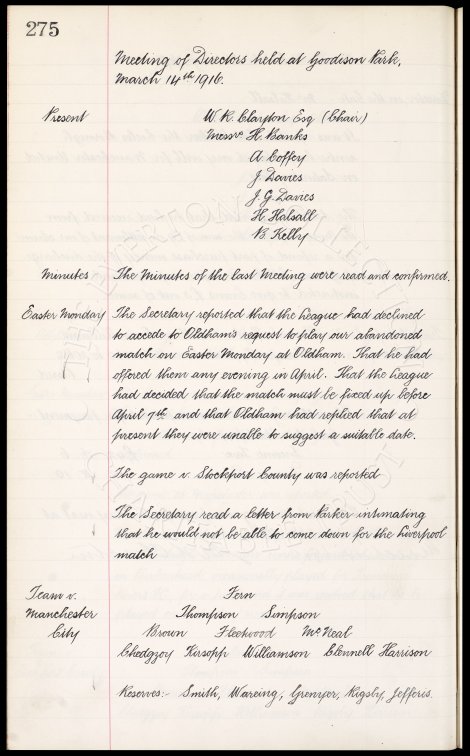 275
Meeting of Directors held at Goodison Park,
March 14th 1916.
Present W. R. Clayton Esq (Chair)
Messrs H. Banks
A. Coffey
J. Davies
J. G. Davies
H. Halsall
B. Kelly
Minutes The Minutes of the last Meeting were read and confirmed.
Easter Monday The Secretary reported that the League had declined
to accede to Oldham's request to play our abandoned
match on Easter Monday at Oldham. That he had
offered them any evening in April. That the League
had decided that the match must be fixed up before
April 7th and that Oldham had replied that at
present they were unable to suggest a suitable date.
The game v. Stockport County was reported
The Secretary read a letter from Parker intimating
that he would not be able to come down for the Liverpool
match
Team v. Fern
Manchester Thompson Simpson
City Brown Fleetwood McNeal
Chedgzoy Kirsopp Williamson Clennell Harrison
Reserves:- Smith, Wareing, Grenyer, Rigsby, Jefferis.